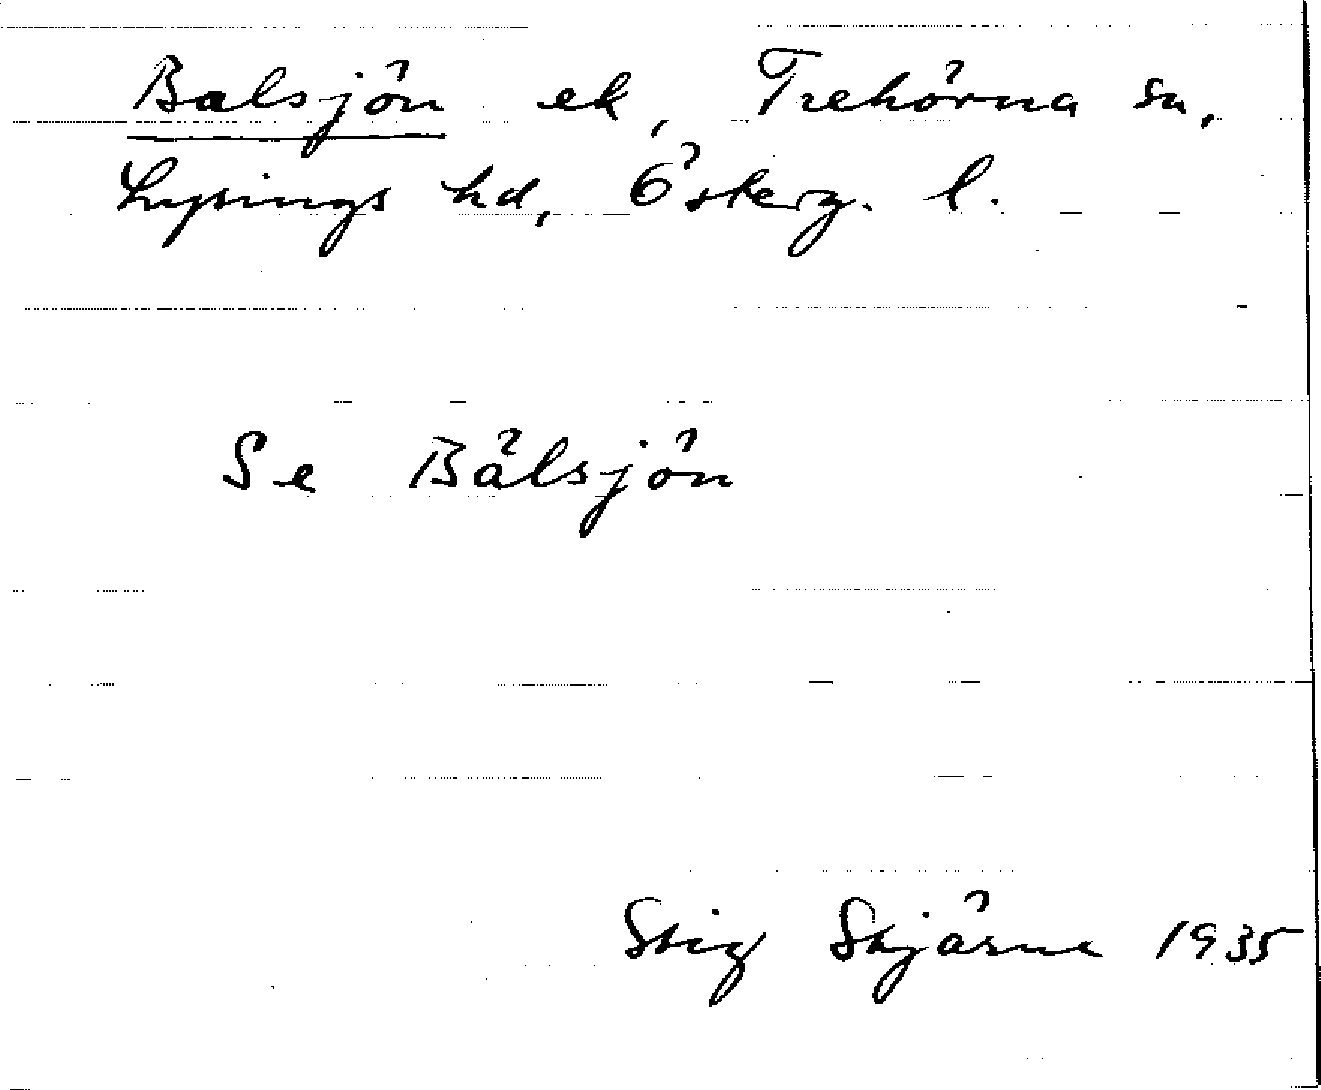 Balsjön ek, Trehörna sn,
Lysings hd, Österg. l.
Se Bälsjön
Stig Stjärne 1935